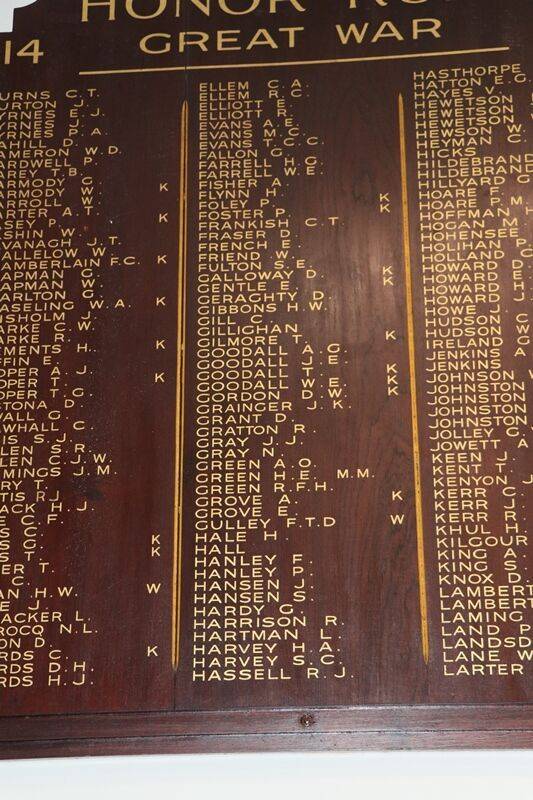 HONOR
14 GREAT WAR
URNS C.T.
URTON J.
YRNES E.J.
YRNES F.
YRNES P.A.
AHILL D.
AMERON W.D.
ARDWELL P.
AREY T.B.
ARMODY G. K
ARMODY W.
ARROLL W.
ARTER A.T. K
ASEY P.
ASHIN W.
AVANAGH J.T.
HALLELOW W.
HAMBERLAIN F.C. K
HAPMAN G.
HAPMAN W.
HARLTON G.
HASELING W.A. K
HISHOLM J.
ARKE C.W.
ARKE R.
EMENTS H. K
FFIN E.
OPER A.J.
OPER T. K
OPER T.G.
STONA D.
VALL G.
AWHALL C.
IS S.J.
LEN S.R.
LEN J.W.
MINGS J.M.
RY T.
TIS R.J
ACK H.J
E C.F.
S C. K
S G. K
S T.
ER T.
C.
AN H.W. W
E J.
ACKER L.
ROCQ N.L.
ON D.
RDS C. K
RDS D.H.
RDS H.J.
ELLEM C.A.
ELLEM R.C.
ELLIOTT E.
ELLIOTT R.
EVANS A.E.
EVANS M.C.
EVANS T.C.C.
FALLON G.
FARRELL H.G.
FARRELL W.E.
FISHER A.
FLYNN H. K
FOLEY P. K
FOSTER P.
FRANKISH C.T.
FRASER D.
FRENCH E.
FRIEND W.
FULTON S.E. K
GALLOWAY D. K
GENTLE E.
GERAGHTY D.
GIBBONS H.W.
GILL G.
GILLIGHAN
GILMORE T. K
GOODALL A.G.
GOODALL J.E.
GOODALL T. K
GOODALL W.E. K
GORDON D.W. K
GRAINGER J.K.
GRANT D.
GRATTON R.
GRAY J.J.
GRAY N.
GREEN A.O.
GREEN H.E. M.M.
GREEN R.F.H.
GROVE A. K
GROVE E.
GULLEY F.T.D W
HALE H.
HALL
HANLEY F.
HANLEY P.
HANSEN J.
HANSEN S.
HARDY G.
HARRISON R.
HARTMAN L.
HARVEY H.A.
HARVEY S.C.
HASSELL R.J.
HASTHORPE
HATTON E.G.
HAYES V.
HEWETSON
HEWETSON
HEWETSON
HEWSON W.
HEYMAN C.
HICKS
HILDEBRAND
HILDEBRAND
HILLYARD G.
HOARE F.
HOARE P.M.
HOFFMAN H
HOGAN M
HOHENSEE
HOLIHAN P.
HOLLAND C
HOWARD D.
HOWARD E.
HOWARD H.
HOWARD J.
HOWE J.
HUDSON C
HUDSON W
IRELAND G
JENKINS A
JENKINS
JOHNSON W
JOHNSTON
JOHNSTON
JOHNSTON
JOLLEY G.
JOWETT A
KEEN J.
KENT T.
KENYON J
KERR C.
KERR J
KERR R
KHUL H.
KILGOUR
KING A.
KING S.
KNOX D.
LAMBERT
LAMBERT
LAMING
LAND P
LANDSD
LANE W
LARTER